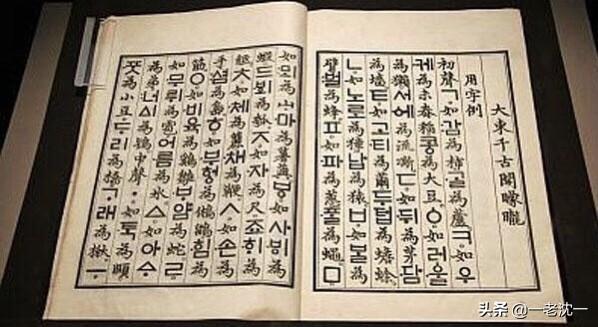 大東千古開朦朧
用字例
初聲ㄱ如감為柿ᄀᆞᆯ為蘆ㅋ如우
케為未舂稻콩為大豆ㆁ如러울
為獺서에為流凘ㄷ如뒤為茅담
為墻ㅌ如고티為繭두텁為蟾蜍
ㄴ如노로為獐납為猿ㅂ如ᄇᆞᆯ為
臂벌為蜂ㅍ如파為葱ᄑᆞᆯ為蠅ㅁ
如뫼為山마為薯藇ㅸ如사ᄫᅵ為
蝦드ᄫᅴ為瓠ㅈ如자為尺죠ᄒᆡ為
紙ㅊ如체為籭채為鞭ㅅ如손為
手셤為島ㅎ如부헝為鵂鶹힘為
筋ㅇ如비육為鷄雛ᄇᆞ얌為蛇ㄹ
如무뤼為雹어름為氷ㅿ如아ᅀᆞ
為弟너ᅀᅵ為鴇中聲ㆍ如ᄐᆞᆨ為頤
ᄑᆞᆺ為小豆ᄃᆞ리為橋ᄀᆞ래為楸ㅡ
头条 @一老沈一